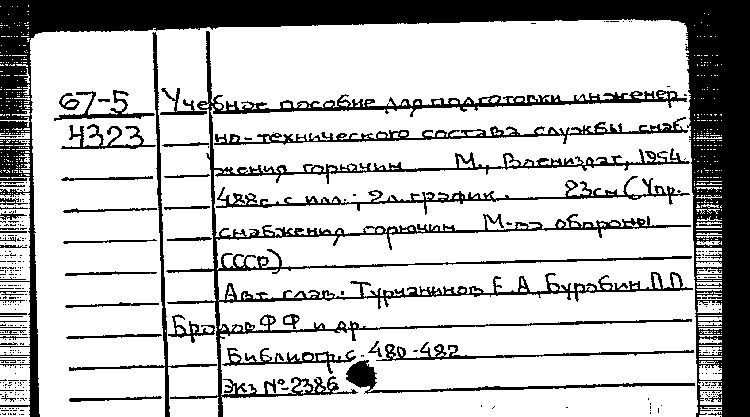 67-5 Учебное пособие для подготовки инженер-
4323 но-технического состава службы снаб-
жения горючим М., Воениздат, 1954
488с. с илл.; 9л. график. 23см (Упр.
снабжения горючим М-ва обороны
СССР).
Авт. глав: Турчанинов Е.А., Бурабин П.П.
Бродов Ф.Ф и др.
Библиогр. с. 480-482
Экз №2386